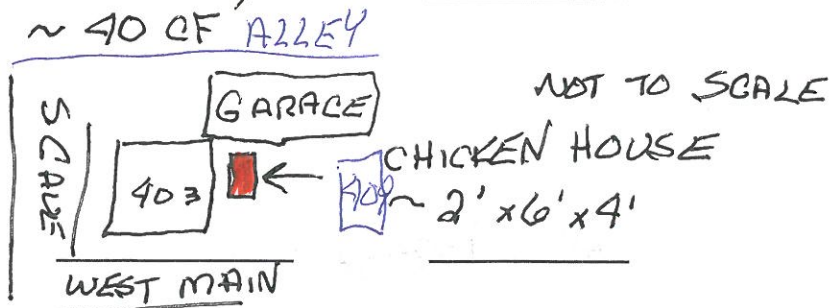 ~ 40 CF ALLEY
GARAGE
NOT TO SCALE
CHICKEN HOUSE
403
409
~ 2' x 6' x 4'
WEST MAIN